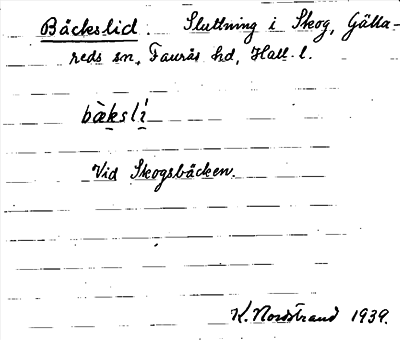 Bäckslid. Sluttning i Skog, Gälla-
reds sn, Faurås hd, Hall. l.
bäkslí
Vid Skogsbäcken.
K. Nordstrand 1939.